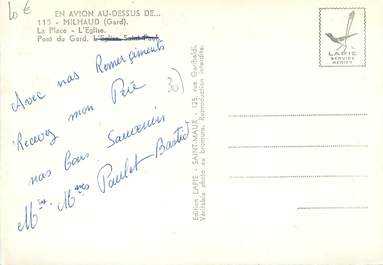 10 €
EN AVION AU-DESSUS DE...
110 - MILHAUD (Gard).
La Place - L'Eglise.
Pont du Gard. L'Eglise Saint-Paul.
LAPIE
SERVICE
AERIEN
Avec nos Remerciments
Recevez mon Père
nos bons Souvenirs
Mr. Mmes Paulet-Bastid
30)
Edition LAPIE - SAINT-MAUR - 125, rue Garibaldi.
Véritable photo au bromure. Reproduction interdite.